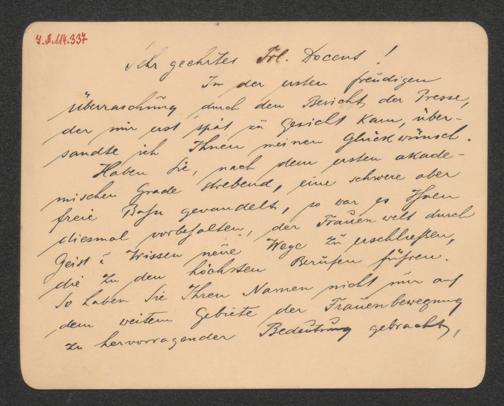 J.N.114.337
Sehr geehrtes Frl. Docent!
In der ersten freudigen
Überraschung durch den Bericht der Presse,
der mir erst spät zu Gesicht kam, über-
sandte ich Ihnen meinen Glückwunsch.
Haben Sie, nach dem ersten akade-
mischen Grade strebend, eine schwere aber
freie Bahn gewandelt, so war es Ihnen
diesmal vorbehalten, der Frauenwelt durch
Geist u Wissen neue Wege zu erschließen,
die zu den höchsten Berufen führen.
So haben Sie Ihren Namen nicht nur auf
dem weiten Gebiete der Frauenbewegung
zu hervorragender Bedeutung gebracht,